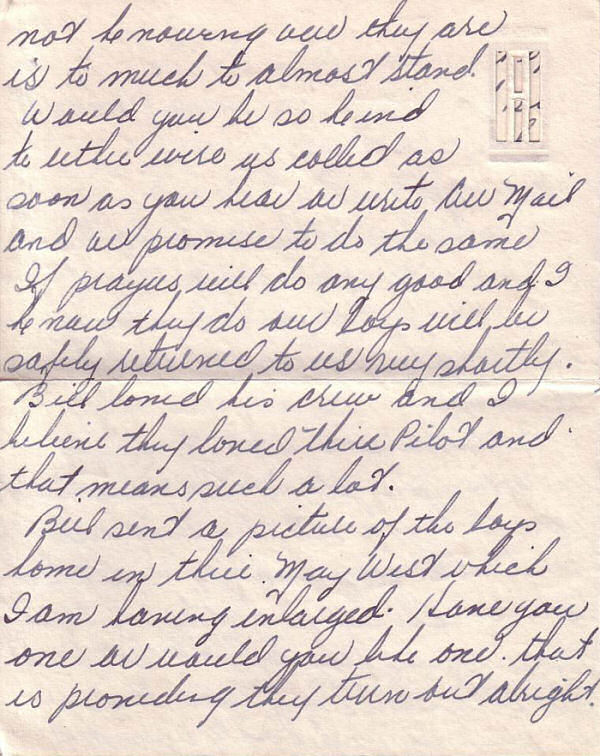 not knowing were they are
is to much to almost stand.
Would you be so kind
to either wire us collect as
soon as you hear or write Air Mail
and we promise to do the same
If prayers will do any good and I
know they do our boys will be
safely returned to us very shortly.
Bill loved his crew and I
believe they loved their Pilot and
that means such a lot.
Bill sent a picture of the boys
home in their May West which
I am having enlarged. Have you
one or would you like one. that
is providing they turn out alright.